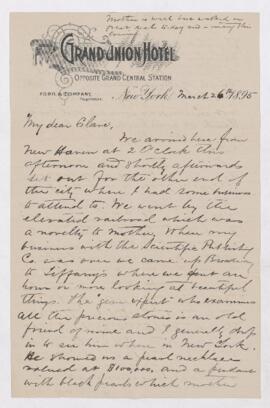 Mother is well but walked a
great deal to day and is very tired
GRAND UNION HOTEL
OPPOSITE GRAND CENTRAL STATION
FORD & COMPANY
PROPRIETORS
New York March 26th 1895
My dear Clare,
We arrived here from
New Haven at 2 O'Clock this
afternoon and shortly afterwards
set out for the other end of
the city where I had some business
to attend to. We went by the
elevated railroad which was
a novelty to mother. When my
business with the Scientific Publishing
Co. was over we came up Broadway
to Tiffany's where we spent an
hour or more looking at beautiful
things. The gem expert who examines
all the precious stones is an old
friend of mine and I generally drop
in to see him when in New York.
He showed us a pearl necklace
valued at $100,000. and a pendant
with black pearls which mother